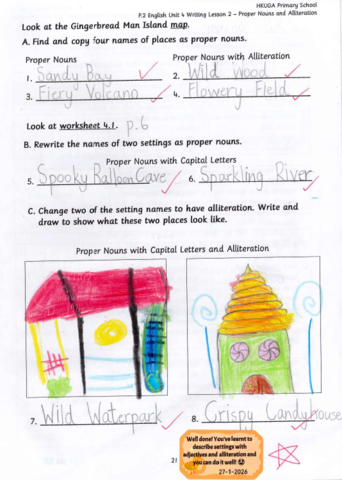 HKUGA Primary School
P.2 English Unit 4 Writing Lesson 2 – Proper Nouns and Alliteration
Look at the Gingerbread Man Island map.
A. Find and copy four names of places as proper nouns.
Proper Nouns
Proper Nouns with Alliteration
1. Sandy Bay
2. Wild Wood
3. Fiery Volcano
4. Flowery Field
Look at worksheet 4.1. p.6
B. Rewrite the names of two settings as proper nouns.
Proper Nouns with Capital Letters
5. Spooky Balloon Cave
6. Sparkling River
C. Change two of the setting names to have alliteration. Write and
draw to show what these two places look like.
Proper Nouns with Capital Letters and Alliteration
7. Wild Waterpark
8. Crispy Candyhouse
Well done! You've learnt to
describe settings with
adjectives and alliteration and
you can do it well!
27-1-2026
21